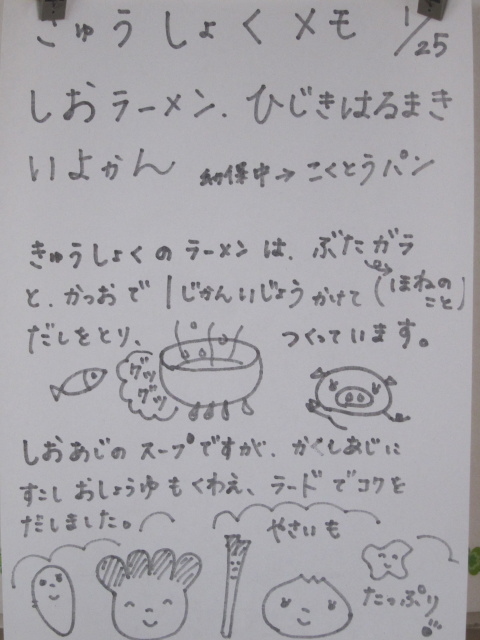 きゅうしょくメモ 1/25
しおラーメン、ひじきはるまき
いよかん 幼保中→こくとうパン
きゅうしょくのラーメンは、ぶたガラ
と、かつおで1じかんいじょうかけて(ほねのこと)
だしをとり、つくっています。
グツグツ
しおあじのスープですが、かくしあじに
すこしおしょうゆもくわえ、ラードでコクを
だしました。 やさいも
たっぷり